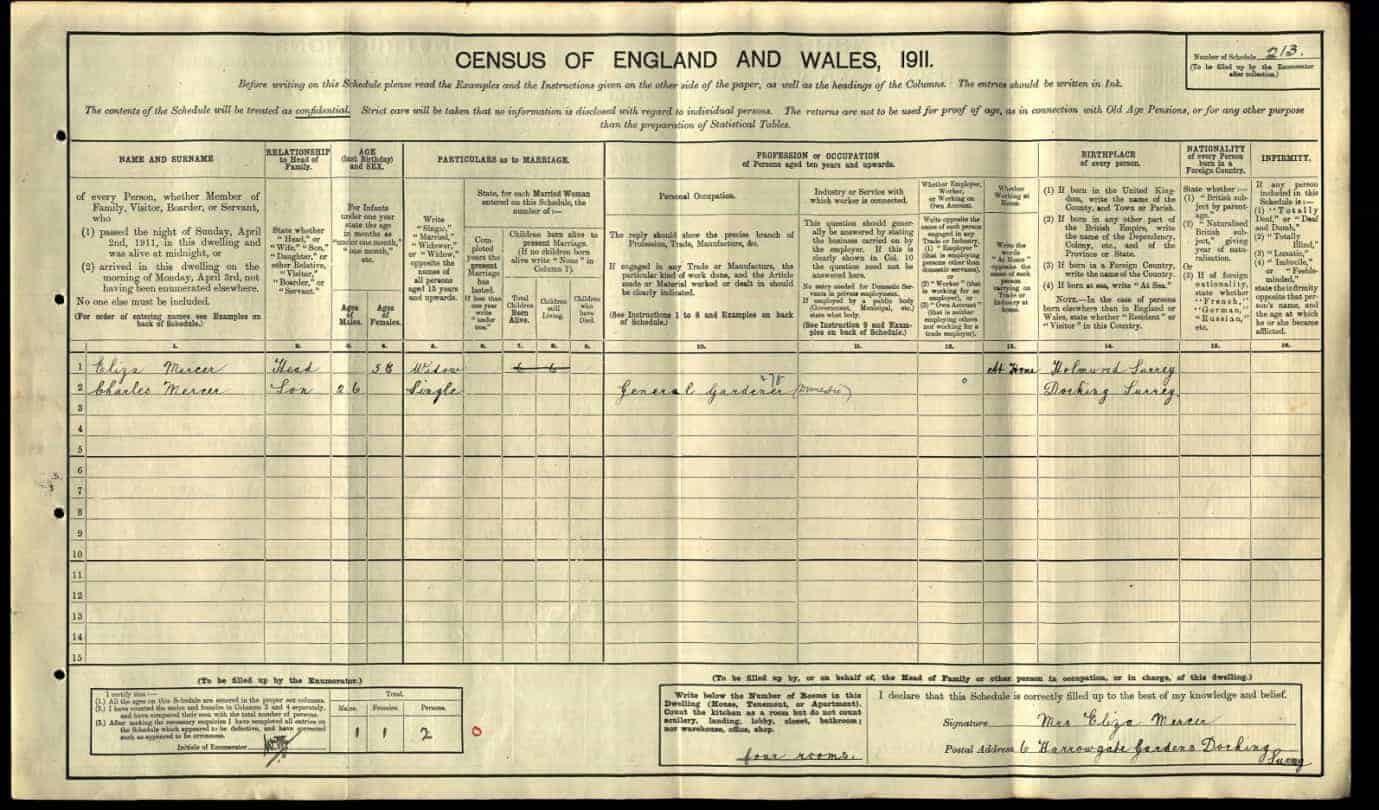 CENSUS OF ENGLAND AND WALES, 1911.
Number of Schedule 213.
(To be filled up by the Enumerator
after collection.)
Before writing on this Schedule please read the Examples and the Instructions given on the other side of the paper, as well as the headings of the Columns. The entries should be written in Ink.
The contents of the Schedule will be treated as confidential. Strict care will be taken that no information is disclosed with regard to individual persons. The returns are not to be used for proof of age, as in connection with Old Age Pensions, or for any other purpose
than the preparation of Statistical Tables.
NAME AND SURNAME
of every Person, whether Member of
Family, Visitor, Boarder, or Servant,
who
(1) passed the night of Sunday, April
2nd, 1911, in this dwelling and
was alive at midnight, or
(2) arrived in this dwelling on the
morning of Monday, April 3rd, not
having been enumerated elsewhere.
No one else must be included.
(For order of entering names see Examples on
back of Schedule.)
RELATIONSHIP
to Head of
Family.
State whether
"Head," or
"Wife," "Son,"
"Daughter," or
other Relative,
"Visitor,"
"Boarder," or
"Servant."
AGE
(last Birthday)
and SEX.
For Infants
under one year
state the age
in months as
"under one month,"
"one month,"
etc.
Ages
of
Males.
Ages
of
Females.
PARTICULARS as to MARRIAGE.
Write
"Single,"
"Married,"
"Widower,"
or "Widow,"
opposite the
names of
all persons
aged 15 years
and upwards.
State, for each Married Woman
entered on this Schedule, the
number of :—
Com-
pleted
years the
present
Marriage
has
lasted.
If less than
one year
write
"under
one."
Children born alive to
present Marriage.
(If no children born
alive write "None" in
Column 7).
Total
Children
Born
Alive.
Children
still
Living.
Children
who
have
Died.
PROFESSION or OCCUPATION
of Persons aged ten years and upwards.
Personal Occupation.
The reply should show the precise branch of
Profession, Trade, Manufacture, &c.
If engaged in any Trade or Manufacture, the
particular kind of work done, and the Article
made or Material worked or dealt in should
be clearly indicated.
(See Instructions 1 to 8 and Examples on back
of Schedule.)
Industry or Service with
which worker is connected.
This question should gener-
ally be answered by stating
the business carried on by
the employer. If this is
clearly shown in Col. 10
the question need not be
answered here.
No entry needed for Domestic Ser-
vants in private employment.
If employed by a public body
(Government, Municipal, etc.)
state what body.
(See Instruction 9 and Exam-
ples on back of Schedule.)
Whether Employer,
Worker,
or Working on
Own Account.
Write opposite the
name of each person
engaged in any
Trade or Industry,
(1) "Employer"
(that is employing
persons other than
domestic servants),
or
(2) "Worker" (that
is working for an
employer), or
(3) "Own Account"
(that is neither
employing others
nor working for a
trade employer).
Whether
Working at
Home.
Write the
words
"At Home"
opposite the
name of each
person
carrying on
Trade or
Industry at
home.
BIRTHPLACE
of every person.
(1) If born in the United King-
dom, write the name of the
County, and Town or Parish.
(2) If born in any other part of
the British Empire, write
the name of the Dependency,
Colony, etc., and of the
Province or State.
(3) If born in a Foreign Country,
write the name of the Country.
(4) If born at sea, write "At Sea."
NOTE.—In the case of persons
born elsewhere than in England or
Wales, state whether "Resident" or
"Visitor" in this Country.
NATIONALITY
of every Person
born in a
Foreign Country.
State whether :—
(1) "British sub-
ject by parent-
age,"
(2) "Naturalised
British sub-
ject," giving
year of natu-
ralisation.
Or
(3) If of foreign
nationality,
state whether
"French,"
"German,"
"Russian,"
etc.
INFIRMITY.
If any person
included in this
Schedule is :—
(1) "Totally
Deaf," or "Deaf
and Dumb,"
(2) "Totally
Blind,"
(3) "Lunatic,"
(4) "Imbecile,"
or "Feeble-
minded,"
state the infirmity
opposite that per-
son's name, and
the age at which
he or she became
afflicted.
1. 2. 3. 4. 5. 6. 7. 8. 9. 10. 11. 12. 13. 14. 15. 16.
1 Eliza Mercer Head 58 Widow 6 6 At Home Holmwood Surrey
2 Charles Mercer Son 26 Single General Gardener 278 (Domestic) Dorking Surrey
3
4
5
6
7
8
9
10
11
12
13
14
15
(To be filled up by the Enumerator.)
I certify that :—
(1.) All the ages on this Schedule are entered in the proper sex columns.
(2.) I have counted the males and females in Columns 3 and 4 separately,
and have compared their sum with the total number of persons.
(3.) After making the necessary enquiries I have completed all entries on
the Schedule which appeared to be defective, and have corrected
such as appeared to be erroneous.
Initials of Enumerator
Total.
Males. Females. Persons.
1 1 2
0
(To be filled up by, or on behalf of, the Head of Family or other person in occupation, or in charge, of this dwelling.)
Write below the Number of Rooms in this
Dwelling (House, Tenement, or Apartment).
Count the kitchen as a room but do not count
scullery, landing, lobby, closet, bathroom ;
nor warehouse, office, shop.
four rooms.
I declare that this Schedule is correctly filled up to the best of my knowledge and belief.
Signature Mrs Eliza Mercer
Postal Address 6 Harrowgate Gardens Dorking
Surrey